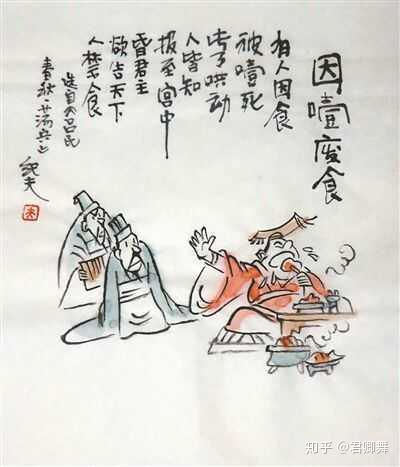 因噎废食
有人因食
被噎死
此事哄动
人皆知
报至宫中
昏君主
欲告天下
人禁食
选自《吕氏
春秋·荡兵》
知乎 @君卿舞